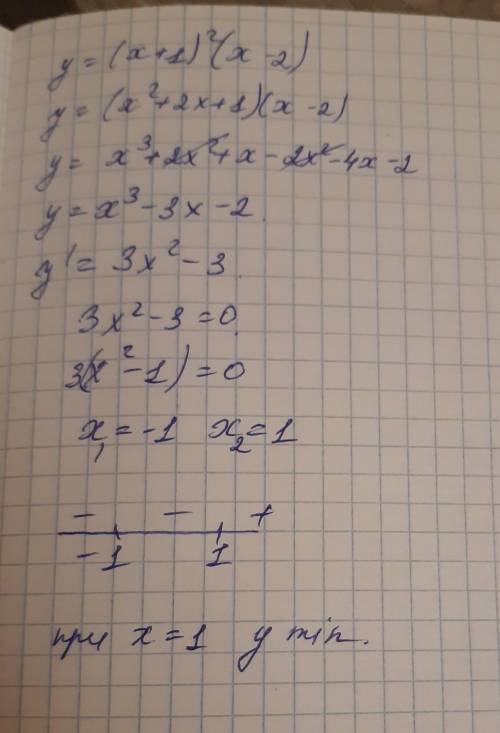 y = (x+1)²(x-2)
y = (x²+2x+1)(x-2)
y = x³+2x²+x-2x²-4x-2
y = x³-3x-2.
y' = 3x²-3.
3x²-3=0.
3(x²-1)=0
x₁=-1 x₂=1
- - +
-1 1
при x=1 y min.